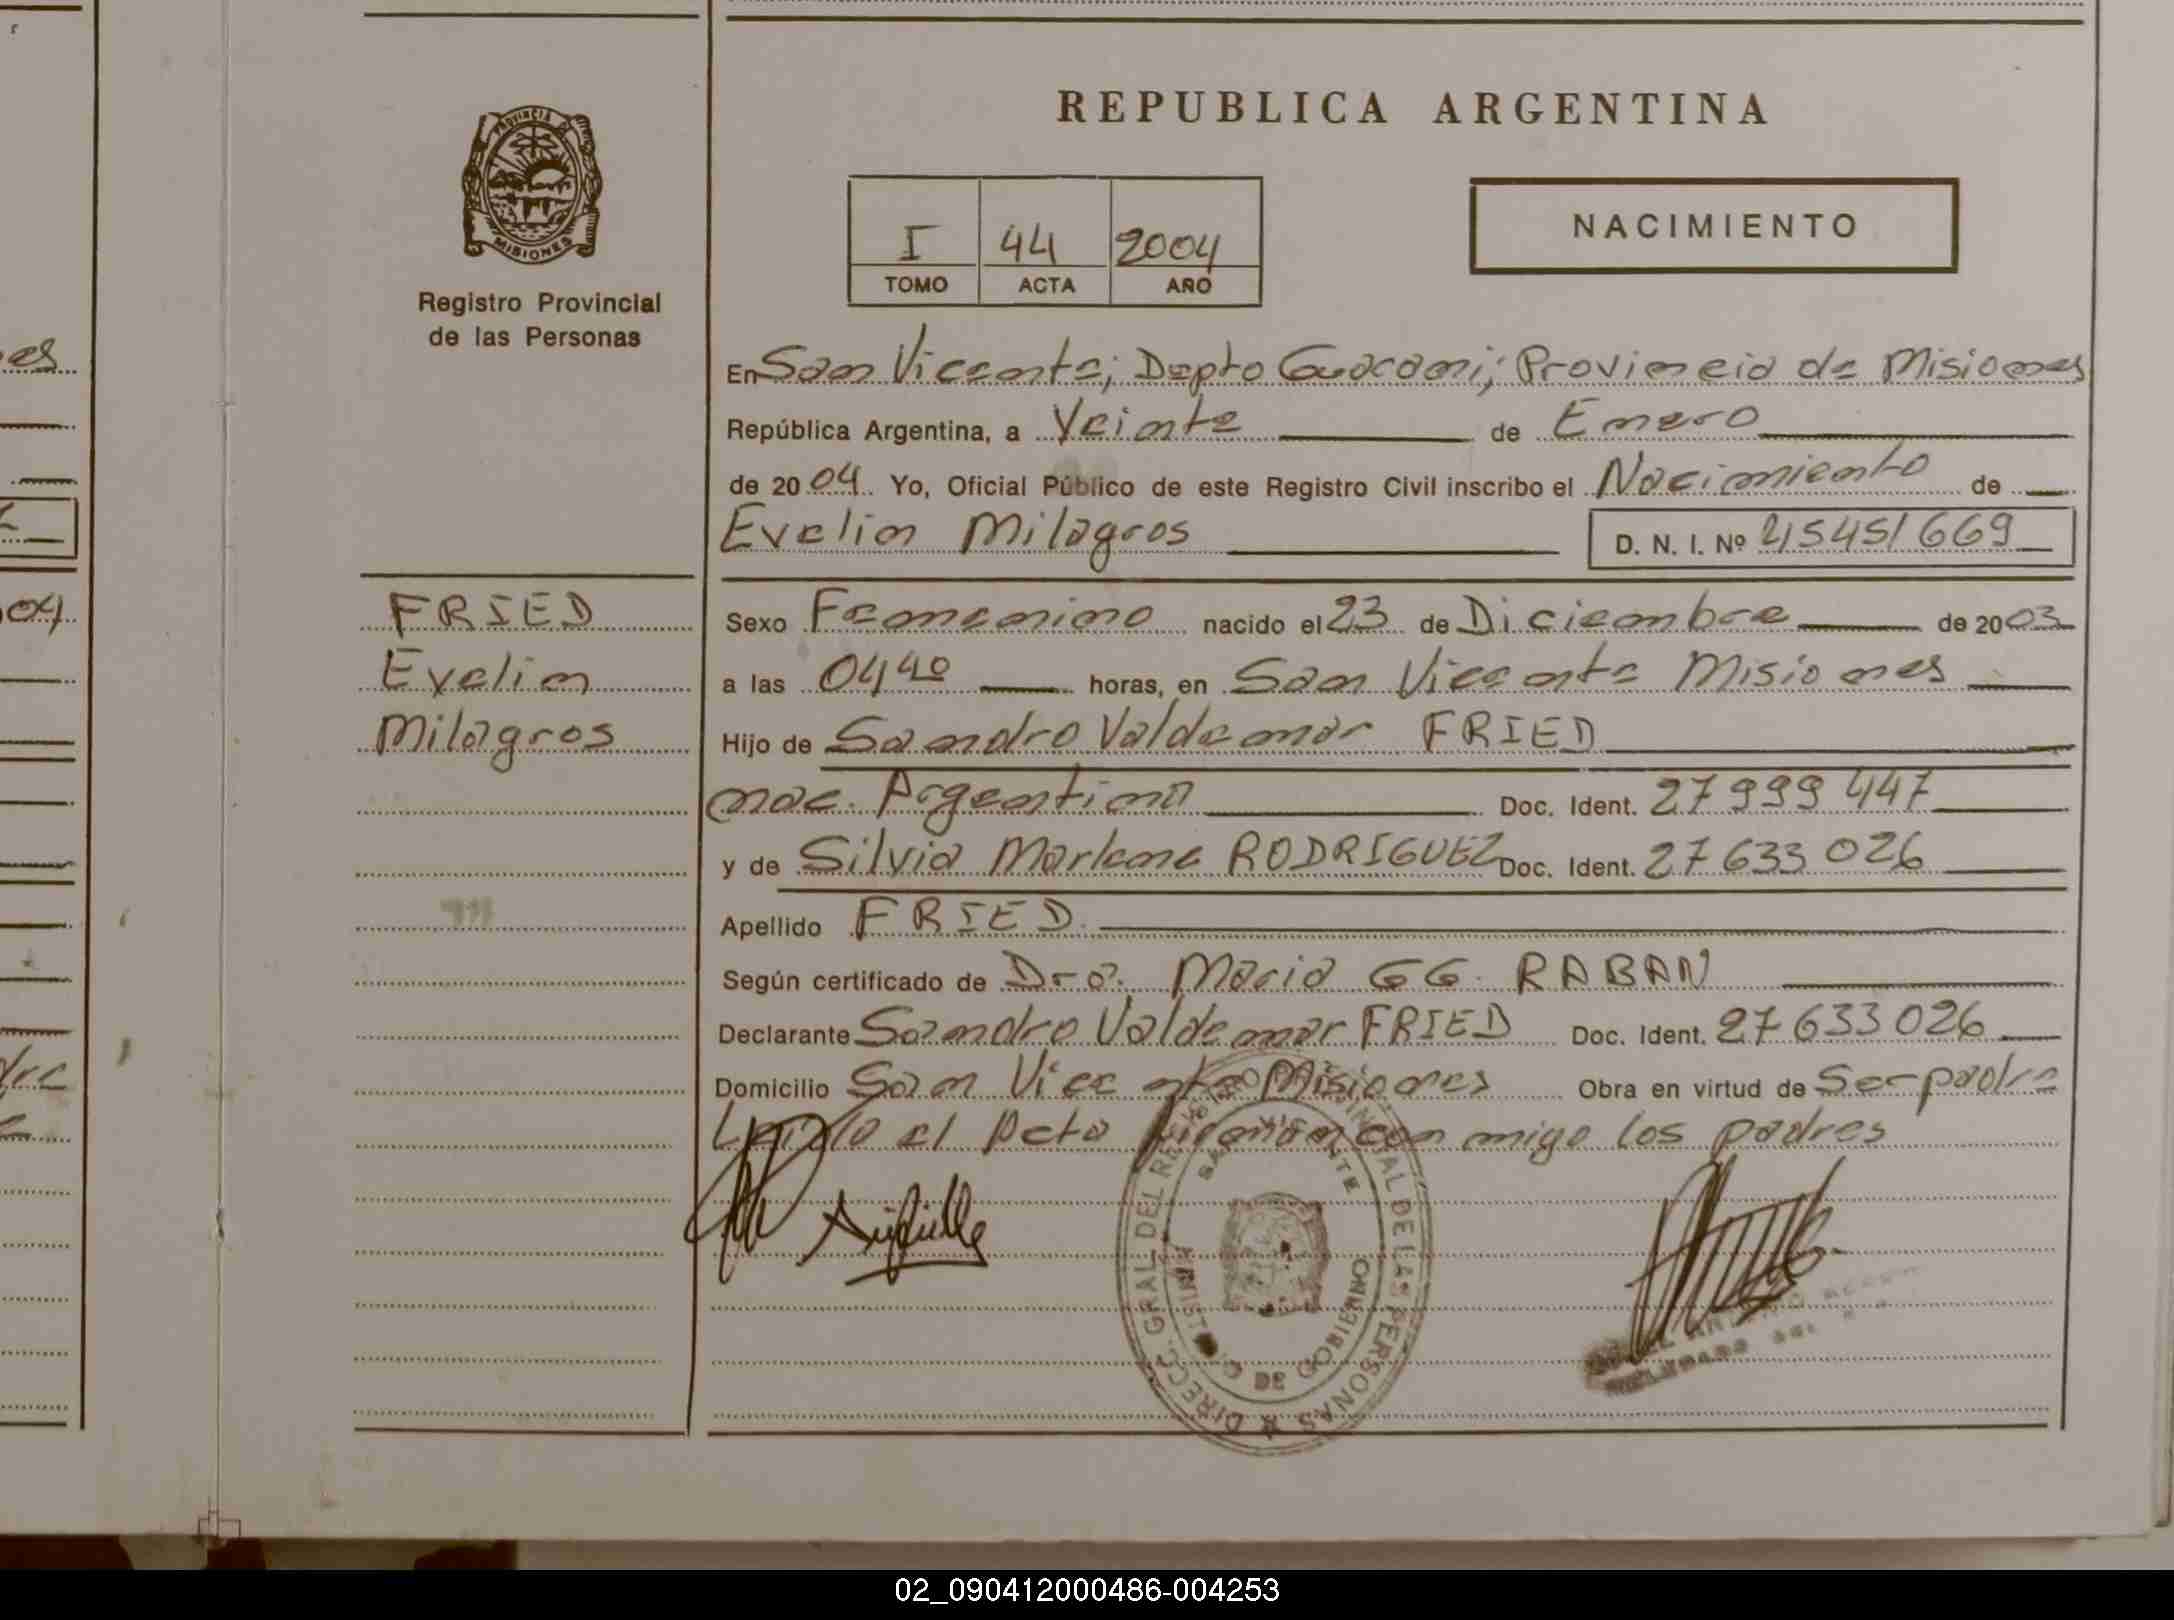 PROVINCIA DE
MISIONES
Registro Provincial
de las Personas
REPUBLICA ARGENTINA
I 44 2004
TOMO ACTA AÑO
NACIMIENTO
En San Vicente; Depto Guarani; Provincia de Misiones
República Argentina, a Veinte de Enero
de 2004. Yo, Oficial Público de este Registro Civil inscribo el Nacimiento de
Evelin Milagros D. N. I. Nº 45451669
FRIED
Evelin
Milagros
Sexo Femenino nacido el 23 de Diciembre de 2003
a las 04 40 horas, en San Vicente Misiones
Hijo de Sandro Valdemar FRIED
nac. Argentina Doc. Ident. 27999447
y de Silvia Marlene RODRIGUEZ Doc. Ident. 27633026
Apellido FRIED
Según certificado de Dra. Maria GG. RABAN
Declarante Sandro Valdemar FRIED Doc. Ident. 27633026
Domicilio San Vicente Misiones Obra en virtud de Ser padre
Leido el Acta firman con migo los padres
DIRECC. GRAL. DEL REGISTRO PROVINCIAL DE LAS PERSONAS
SAN VICENTE
MINISTERIO DE GOBIERNO
es
04
dre
02_090412000486-004253